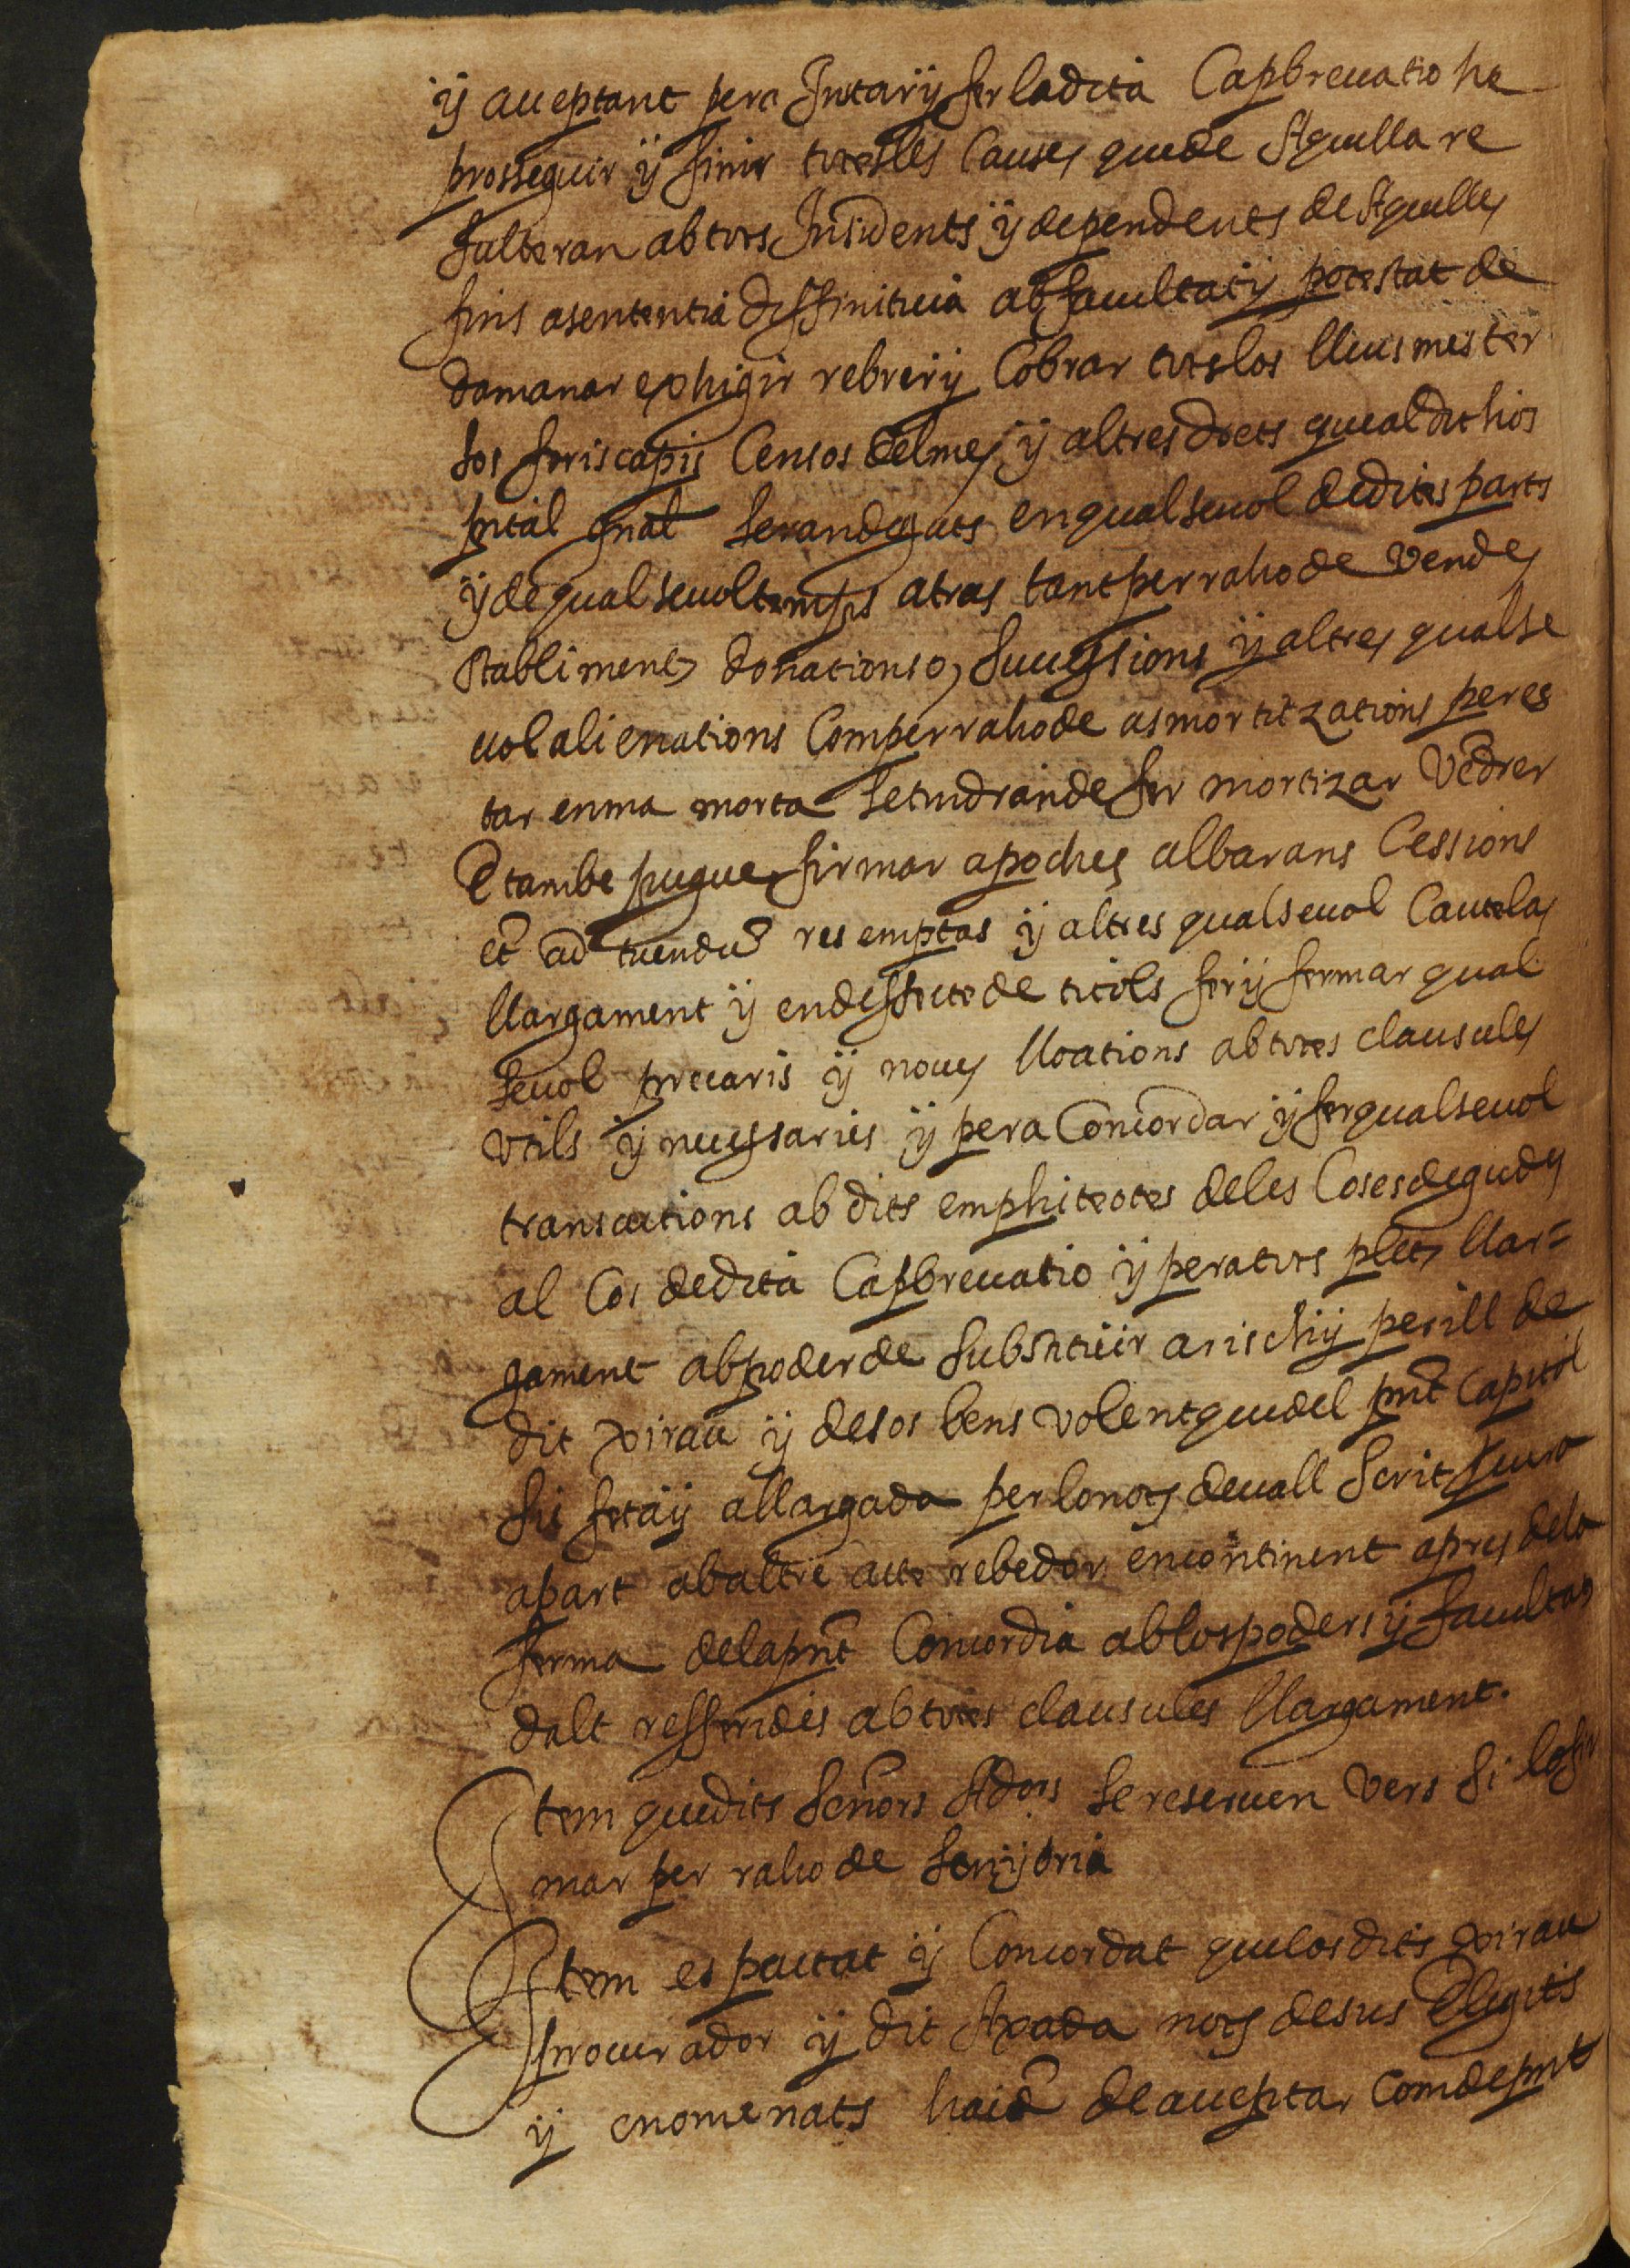 ÿ acceptant pera Intar ÿ fer la dita Capbreuatio he
prosseguir ÿ finir totes les Causes que de Aquella re
sulteran ab tots Insidents ÿ dependents de Aquelles
fins a sententia diffinitiua ab facultat ÿ potestat de
damanar exhigir rebrer ÿ Cobrar tots los lluismes ter
sos foriscapis Censos delmes ÿ altres drets que al dit hos
pital gnal seran deguts en qualseuol de dites parts
ÿ de qualseuol temps atras tant per raho de vendes
stabliments donations o, successions ÿ altres qualse
uol alienations Com per raho de asmortitzations per es
tar en ma morta se tindran de fer mortizar Vedrer
E tambe pugue firmar apoches albarans Cessions
et ad tuendũ res emptas ÿ altres qualseuol Cauteles
llargament ÿ en deffecte de titols fer ÿ fermar qual
seuol precaris ÿ noues lloations ab totes clausules
vtils ÿ necessaries ÿ pera Concordar ÿ fer qualseuol
transactions ab dits emphiteotes de les Coses degudes
al Cos de dita Capbreuatio ÿ pera tots plets llar=
gament ab poder de substituir a risch ÿ perill de
dit xirau ÿ de sos bens volent que del pnt Capitol
sie feta ÿ allargada per lo notj deuall scrit scura
apart ab altre acte rebedor encontinent apres de la
ferma de la pnt Concordia ab los poders ÿ facultats
dalt refferides ab totes clausules llargament.
Item que dits señors Adors se reseruen vers si lo fir
mar per raho de senÿoria
Item es pactat ÿ Concordat que los dits xirau
procurador ÿ dit Axada notj desus Elegits
ÿ enomenats haiã de acceptar Com de pnt